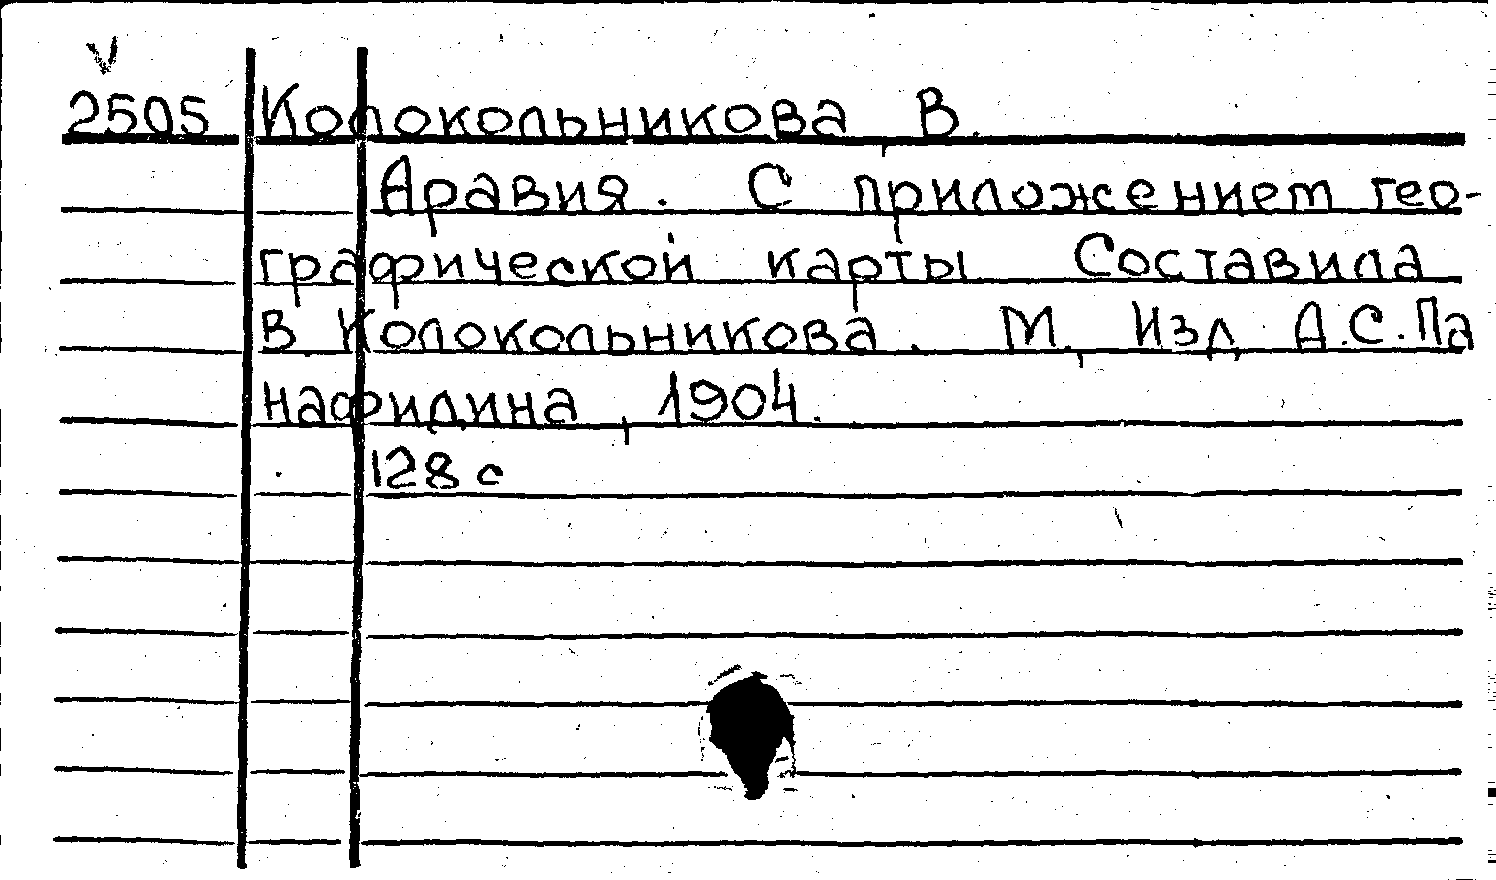 V
2505 Колокольникова В.
Аравия. С приложением гео-
графической карты Составила
В Колокольникова. М., Изд А.С.Па
нафидина, 1904.
128 с